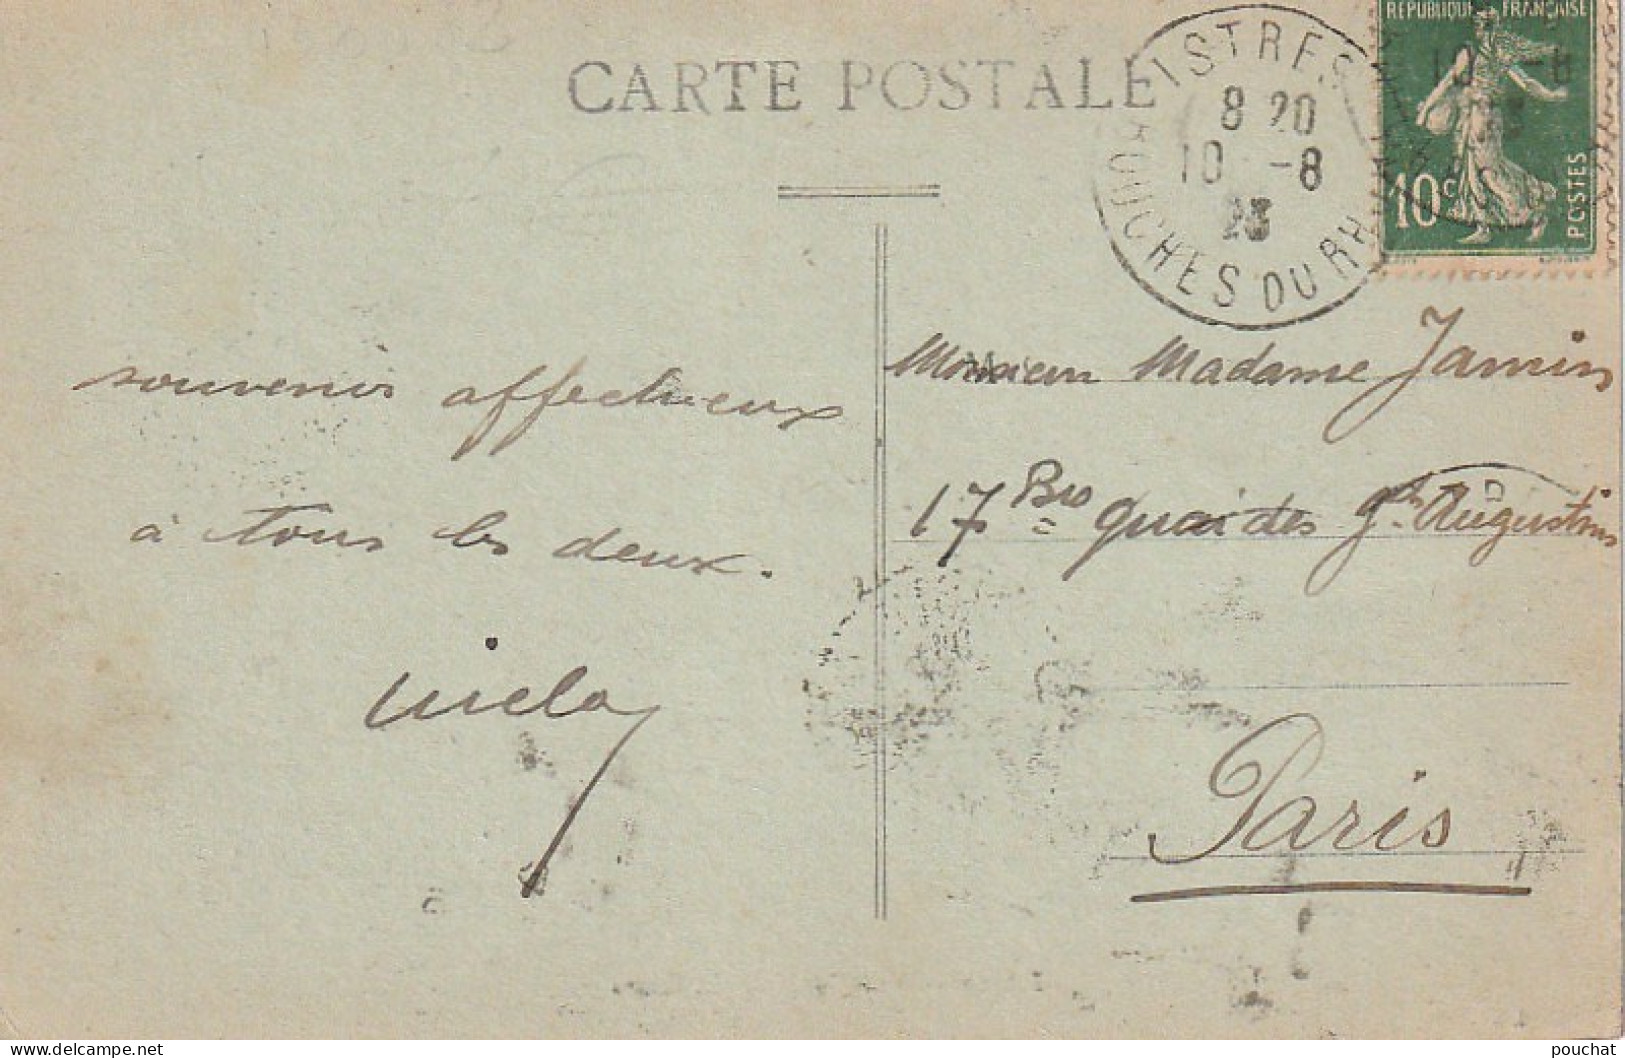 CARTE POSTALE
ISTRES
8 20
10 -8
23
BOUCHES DU RH
REPUBLIQUE FRANÇAISE
10 -8
23
10c
POSTES
souvenirs affectueux
à tous les deux.
Monsieur Madame Jamin
17 Bis quai des Gds Augustins
Paris
pouchat